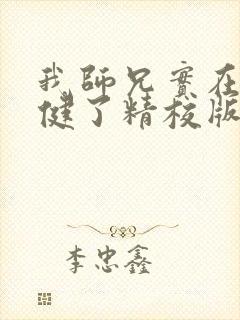 我师兄實在
健了精校版
李忠鑫